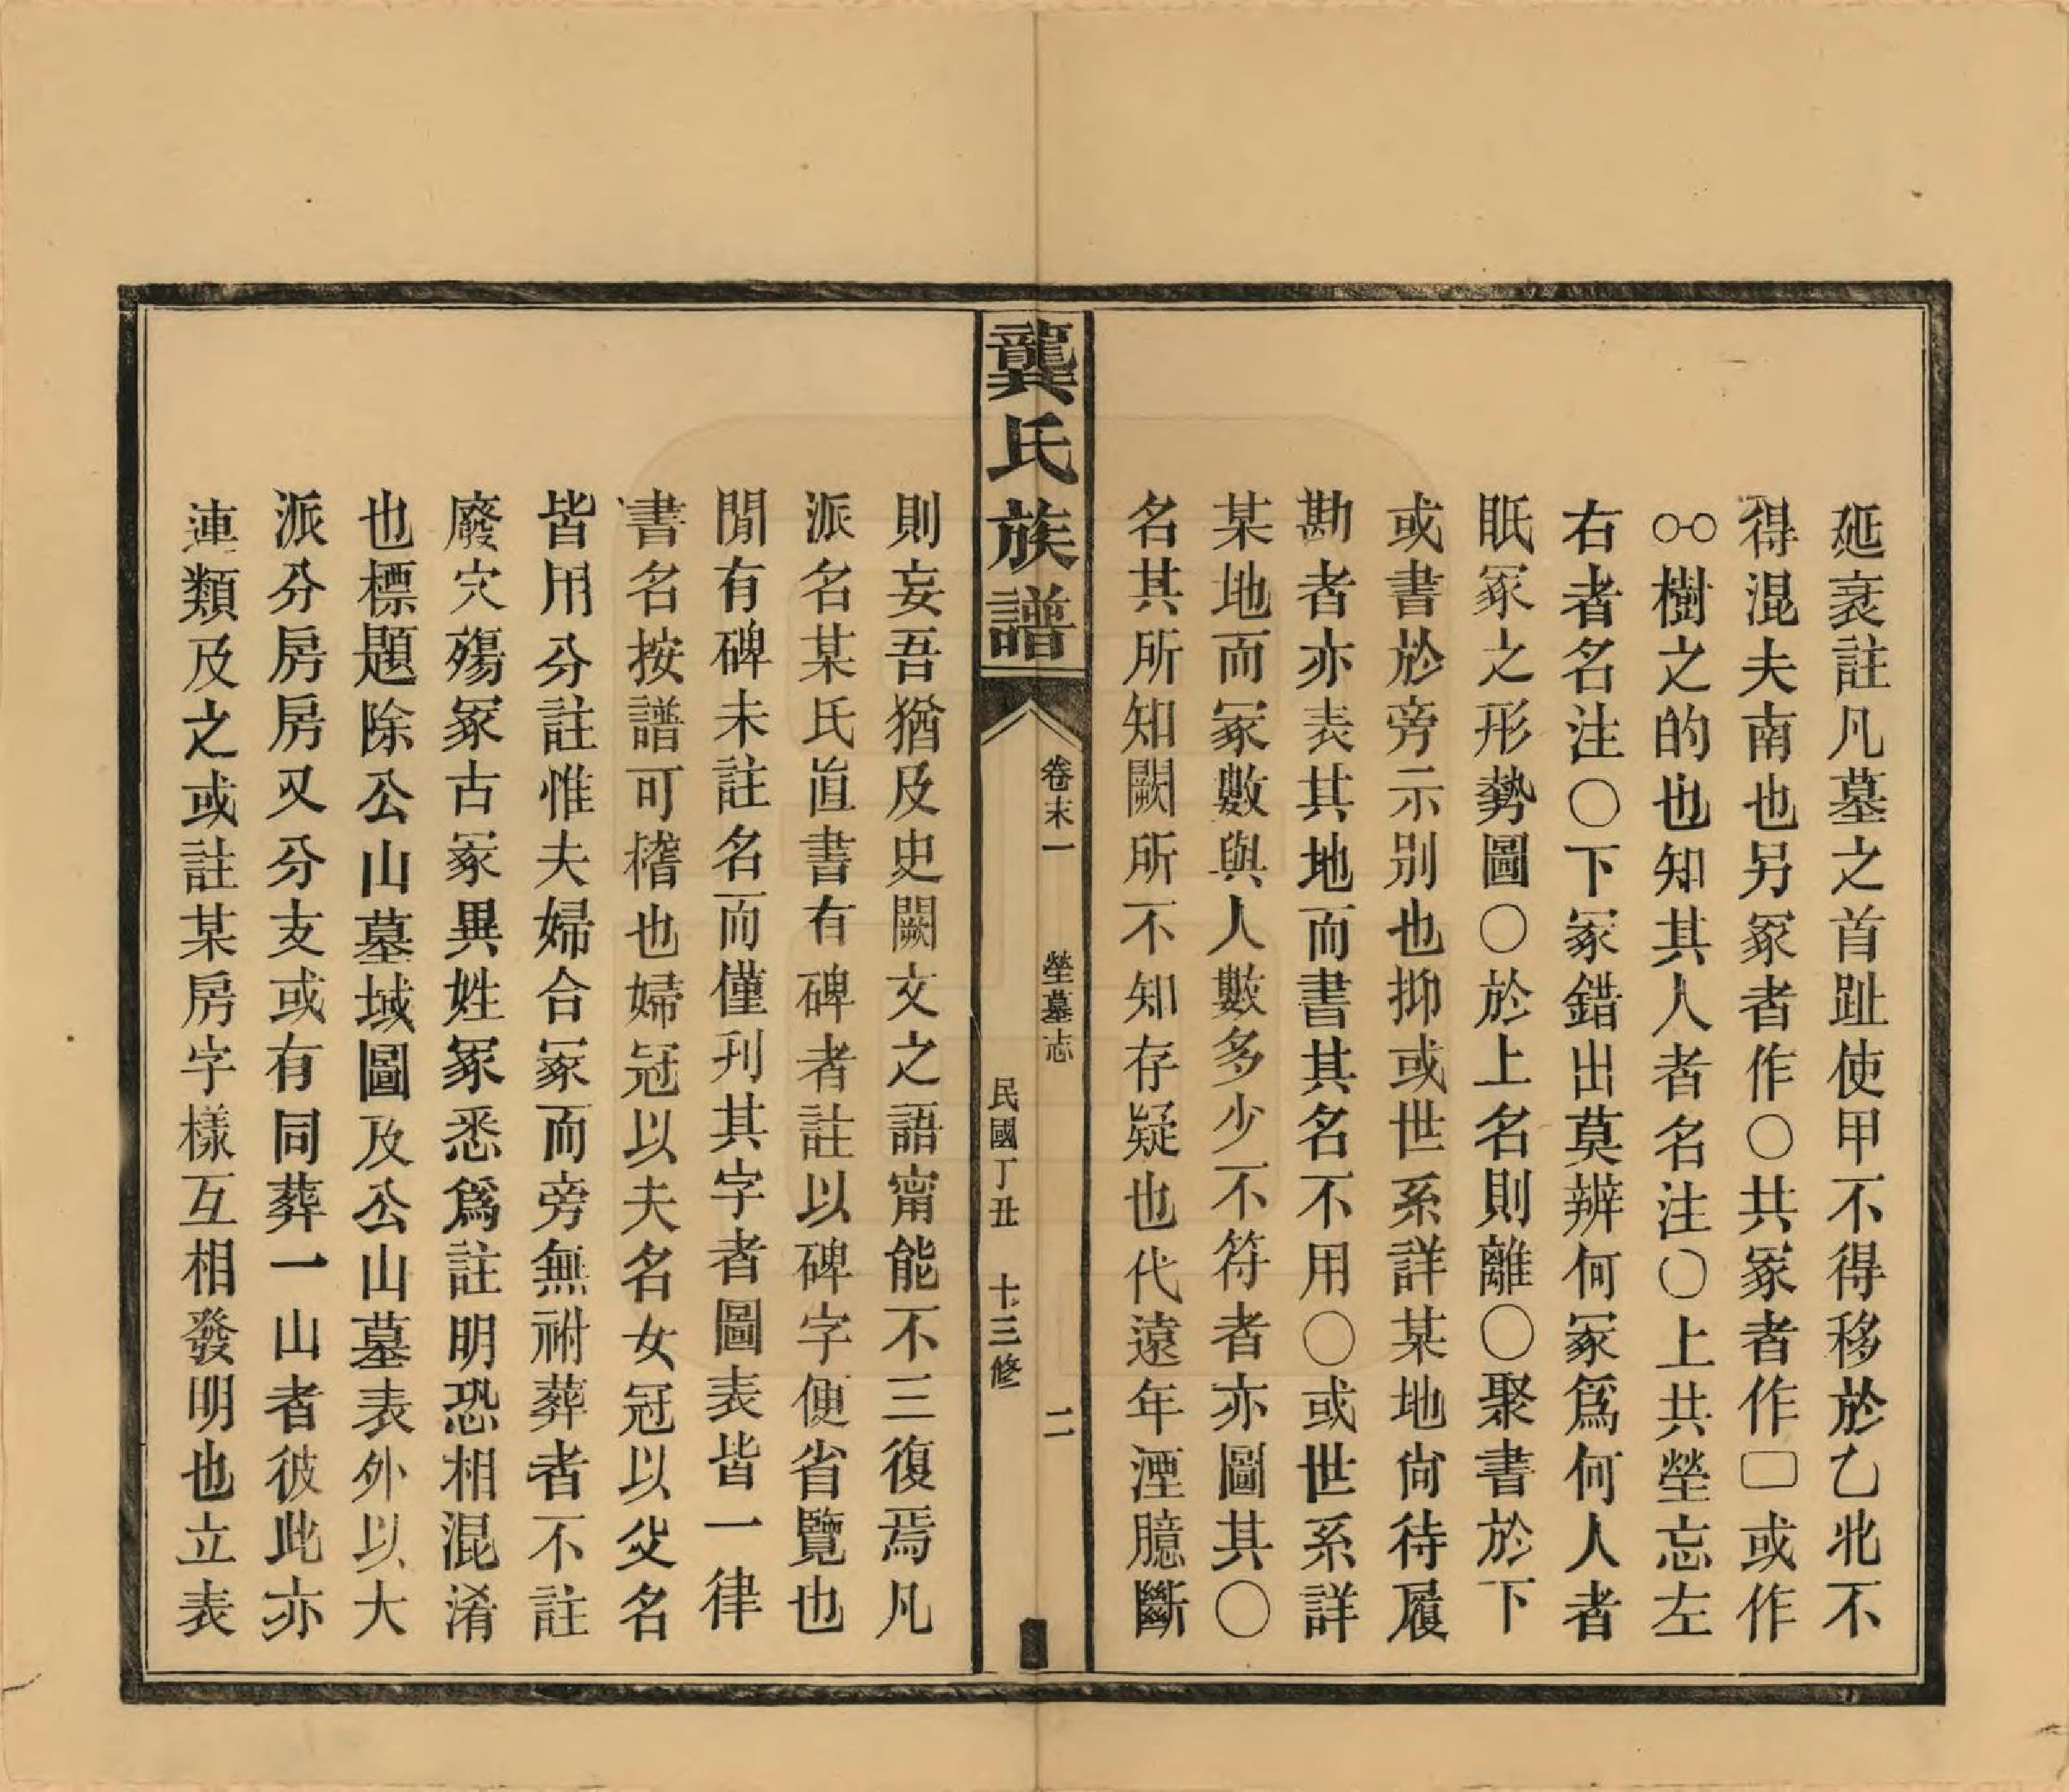 延袤註凡墓之首趾使甲不得移於乙北不
得混夫南也另冡者作〇共冡者作▭或作
○-○樹之的也知其人者名注〇上共塋忘左
右者名注〇下冡錯出莫辨何冡爲何人者
眂冡之形勢圖〇於上名則離〇聚書於下
或書於旁示別也抑或世系詳某地尙待履
勘者亦表其地而書其名不用〇或世系詳
某地而冡數與人數多少不符者亦圖其〇
名其所知闕所不知存疑也代遠年湮臆斷
龔氏族譜
卷末一 塋墓志 二
民國丁丑 十三修
則妄吾猶及史闕文之語甯能不三復焉凡
派名某氏直書有碑者註以碑字便省覽也
閒有碑未註名而僅刋其字者圖表皆一律
書名按譜可稽也婦冠以夫名女冠以父名
皆用分註惟夫婦合冡而旁無祔葬者不註
廢穴殤冡古冡異姓冡悉爲註明恐相混淆
也標題除公山墓域圖及公山墓表外以大
派分房房又分支或有同葬一山者彼此亦
連類及之或註某房字樣互相發明也立表